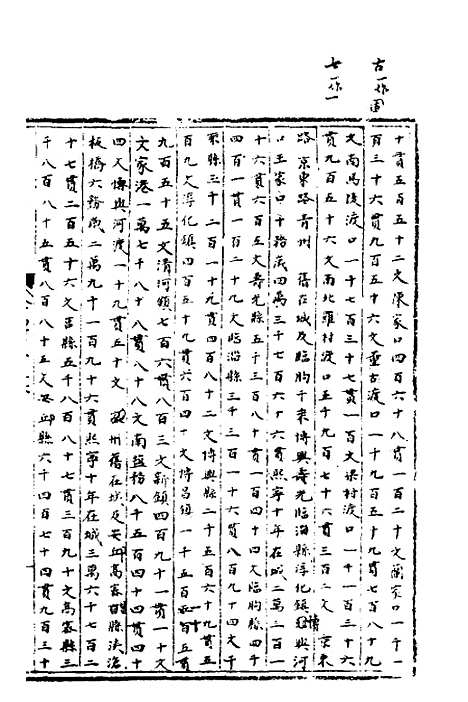 古一作固
七一作一
十貫五百五十二文陳家口四百六十八貫一百二十文蘭家口一千一
百三十六貫九百五十六文董古渡口一千九百五十九貫七百八十九
文南馬陵渡口一千七百三十七貫一百文梁村渡口一千一百三十六
貫九百五十六文南北羅村渡口五千九百七十六貫三百二文 京東
路京東路青州 舊在城及臨朐千乘博興壽光臨淄縣淳化鎮博興河
口王家口十務歲四萬三千七百六十六貫熙寧十年在城二萬二百一
十六貫六百三文壽光縣五千三百八十貫一百四十四文臨朐縣四千
四百一貫一百二十九文臨淄縣三千三百一十六貫八百九十四文千
乘縣三千二百一十九貫四百八十二文博興縣二千五百六十九貫五
百九文淳化鎮四百五十九貫六百四十文博昌鎮一千五百五貫
九百五十五文清河鎮七百六貫八百三文新鎮四百九十一貫一十文
文家港一萬七千八十八貫八十八文南鹽務八千五百四十四貫四十
四文博興河渡一十九貫五十文 密州舊在城及安丘高密莒縣洸洛
板橋六務歲二萬九千一百九十六貫熙寧十年在城三萬六千七百二
十七貫二百五十六文莒縣五千八百八十七貫三百九十文高密縣三
千八百八十五貫八百八十五文安丘縣六千四百七十四貫九百三十